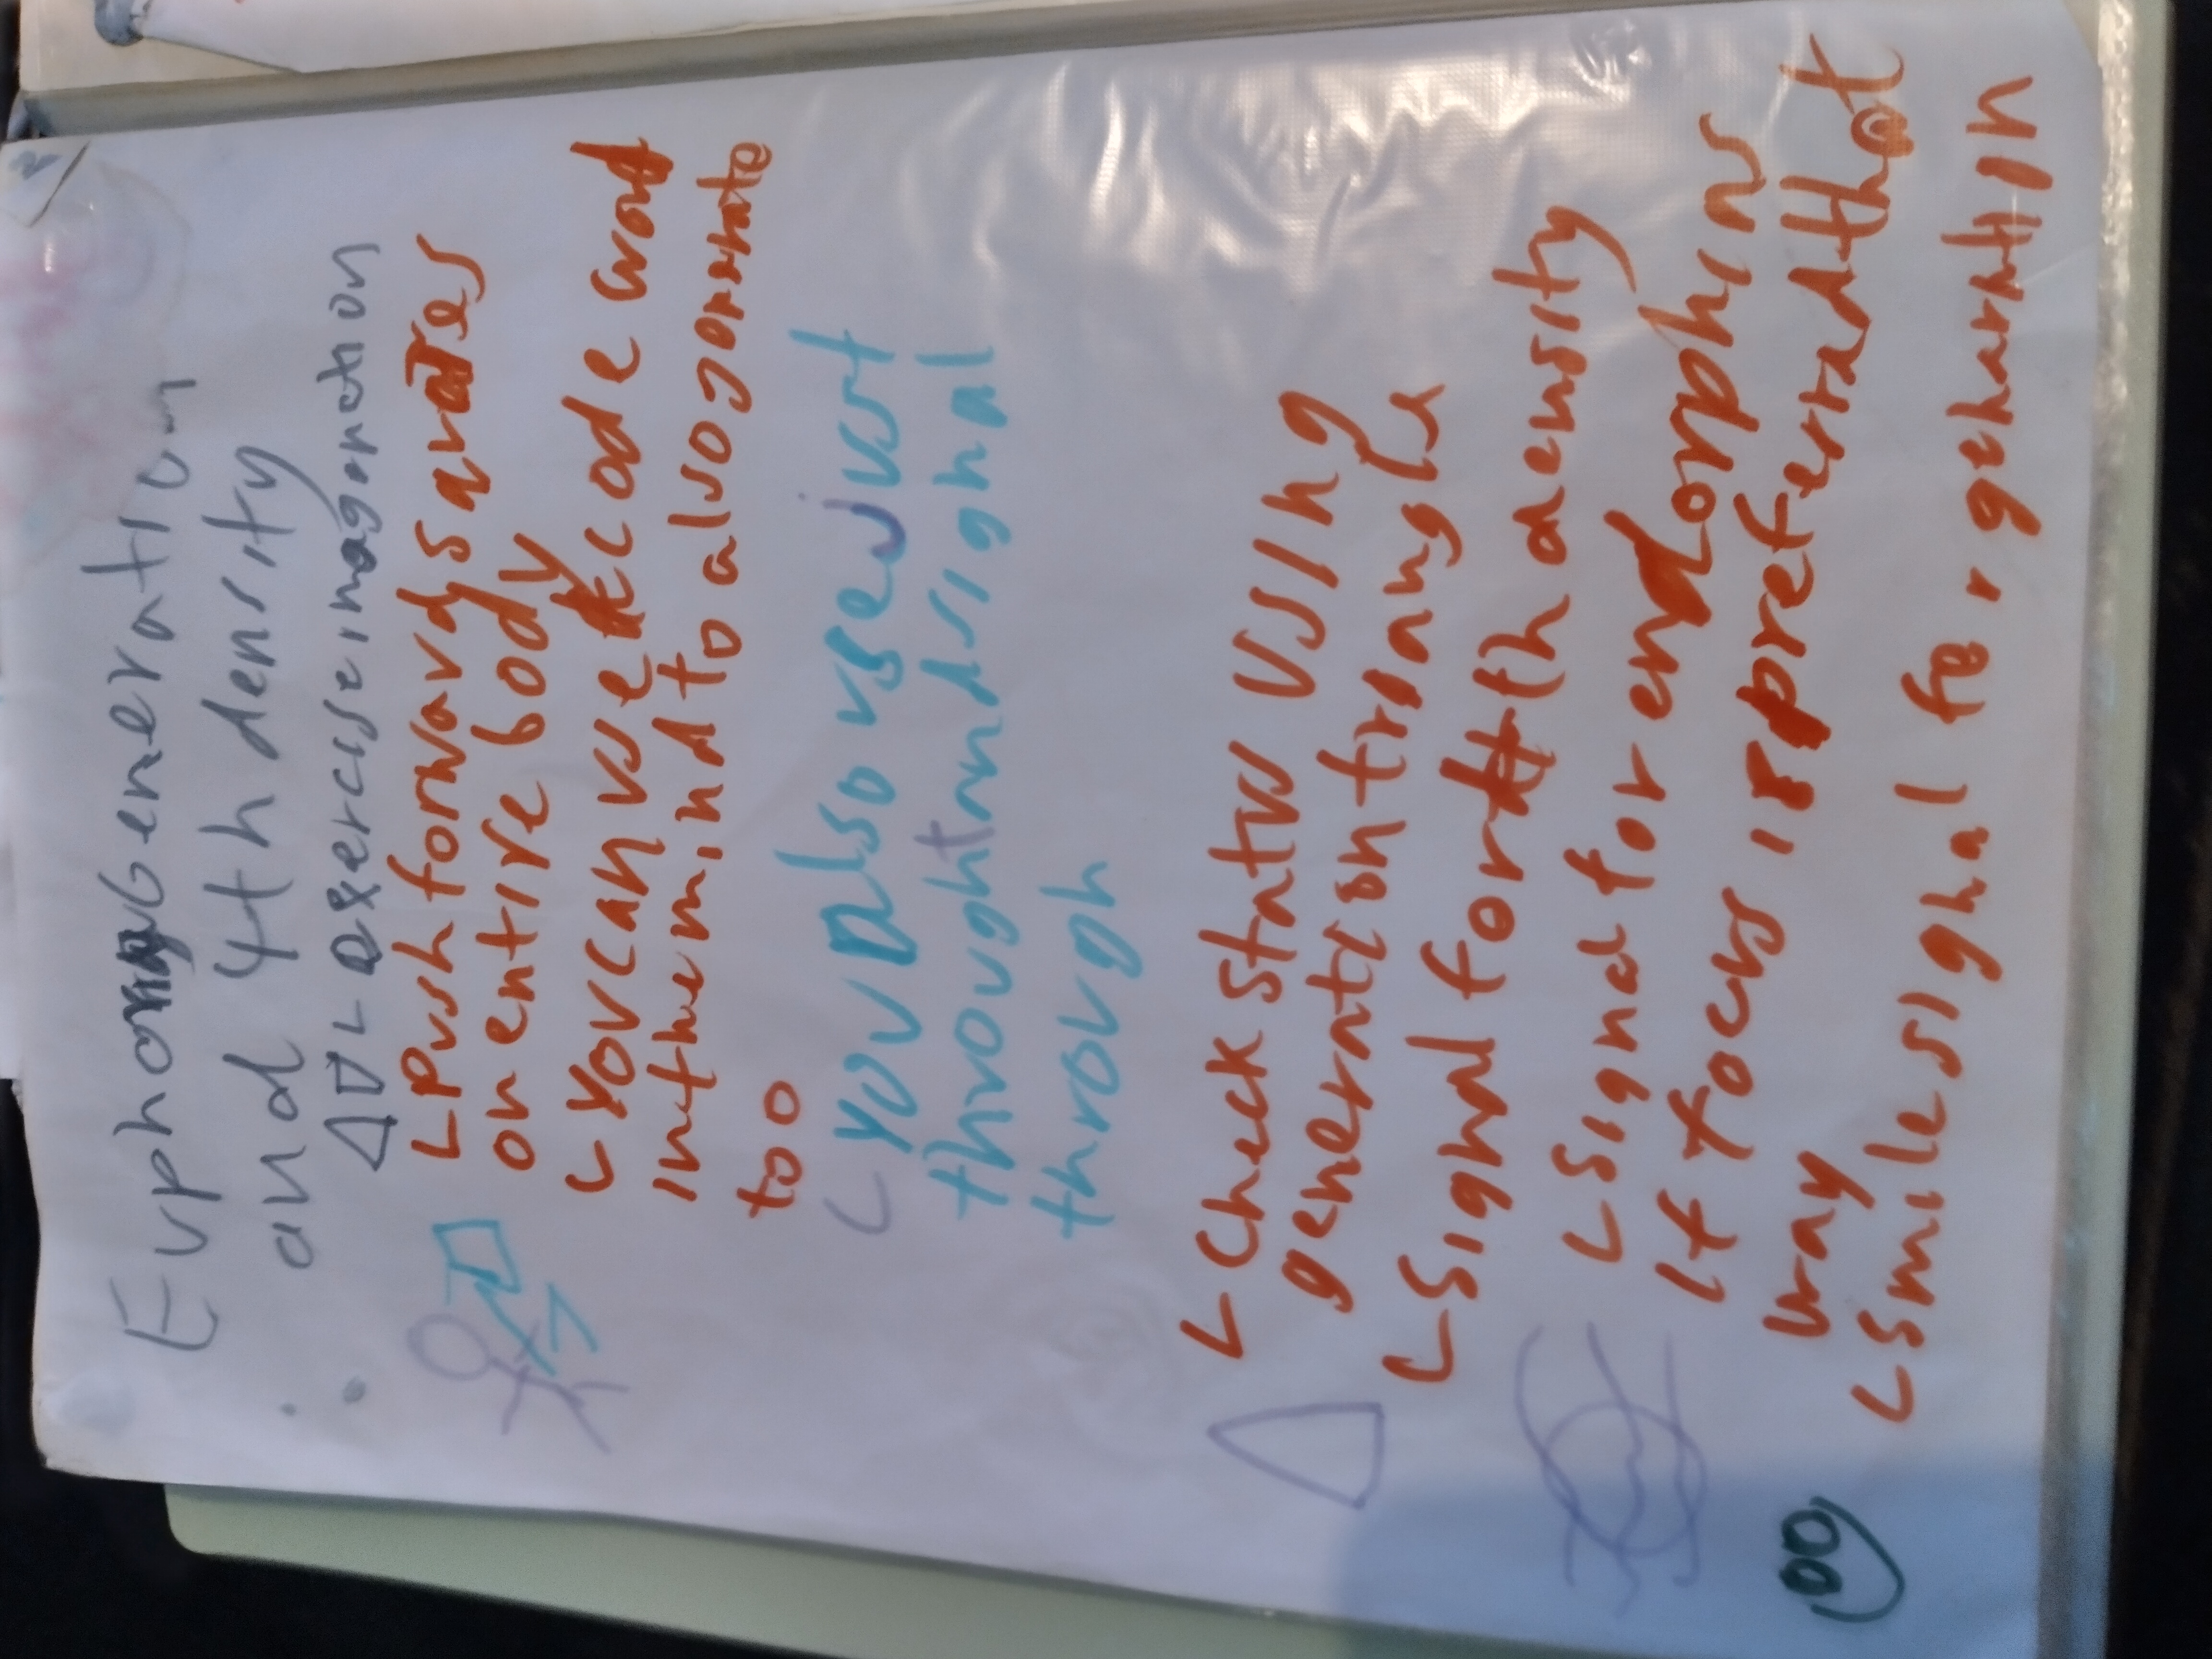 Euphoria Generation
and 4th density
exercise imagination
Push forwards
on entire body
you can use code word
in the mind to also generate
too
you also use just
thought and signal
through
check status using
generation triangle
signal for 4th density
signal for endorphins
if focus is preferred that
way
smile signal